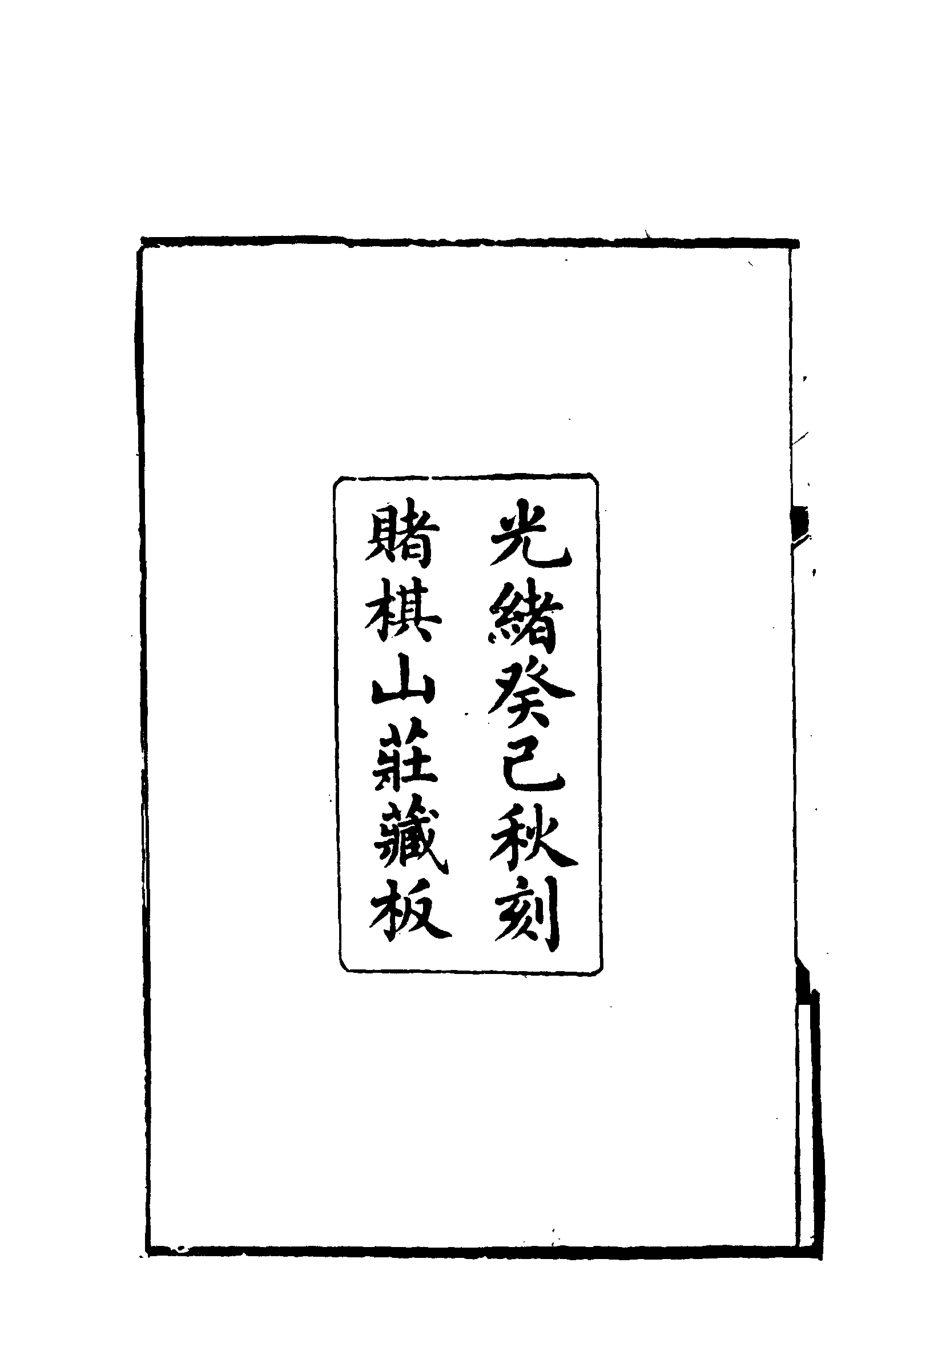 光緒癸巳秋刻
賭棋山莊藏板